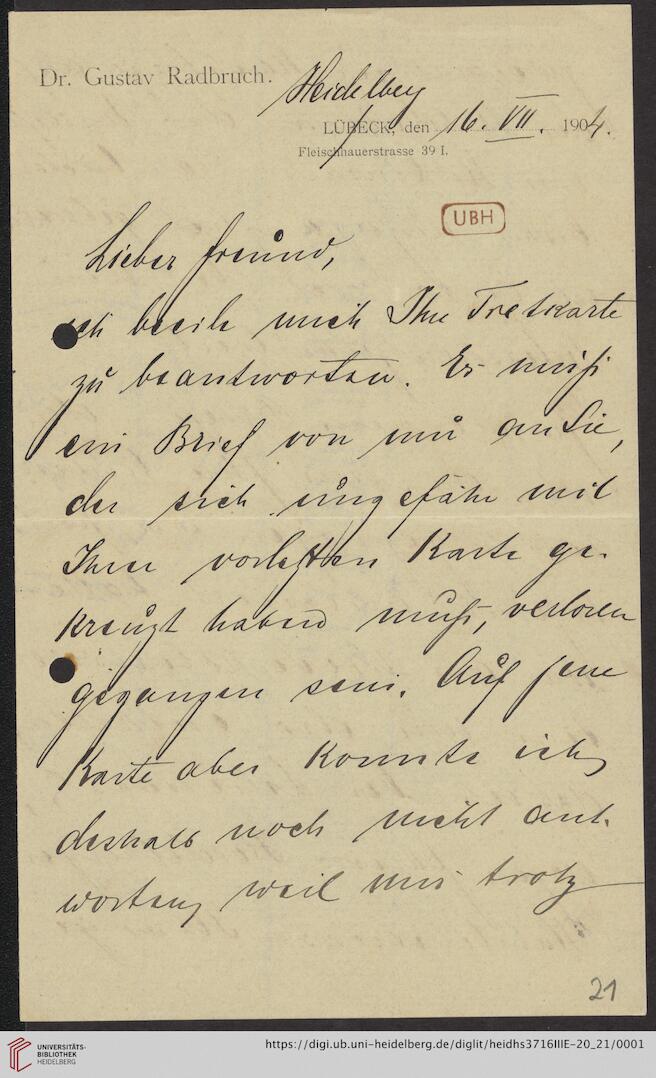 Dr. Gustav Radbruch.
Heidelberg
LÜBECK, den 16. VII. 1904.
Fleischhauerstrasse 39 I.
UBH
Lieber Freund,
ich beeile mich Ihre Tretkarte
zu beantworten. Es muß
ein Brief von mir an Sie,
der sich ungefähr mit
Ihrer vorletzten Karte ge-
kreuzt haben muß, verloren
gegangen sein. Auf jene
Karte aber konnte ich
deshalb noch nicht ant-
worten, weil mir trotz
21
UNIVERSITÄTS-
BIBLIOTHEK
HEIDELBERG
https://digi.ub.uni-heidelberg.de/diglit/heidhs3716IIIE-20_21/0001